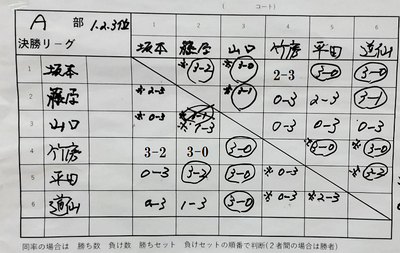 ( コート)
A 部 1.2.3位 1 2 3 4 5 6
決勝リーグ 坂本 藤原 山口 竹房 平田 道仙
1 坂本 ※3-2 ※3-0 2-3 3-0 3-0
2 藤原 ※2-3 ※3-1 0-3 2-3 3-1
3 山口 ※0-3 ※1-3 0-3 0-3 0-3
4 竹房 3-2 3-0 3-0 ※3-0 ※3-0
5 平田 0-3 3-2 3-0 ※0-3 ※3-2
6 道仙 0-3 1-3 3-0 ※0-3 ※2-3
同率の場合は 勝ち数 負け数 勝ちセット 負けセットの順番で判断(2者間の場合は勝者)